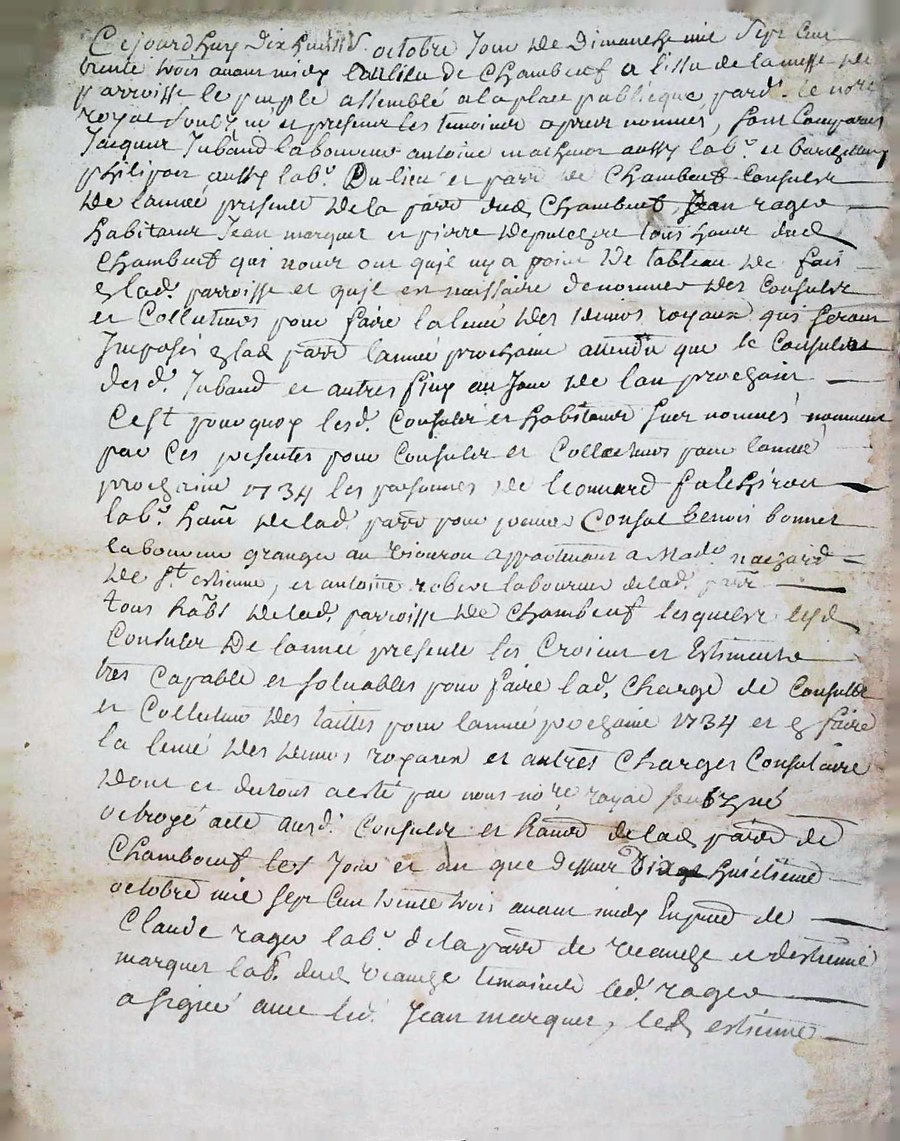 Cejourdhuy dix huict octobre Jour de dimanche mil sept cent
trente trois avant midy lieu de Chambeuf a lissu de la messe de
parroisse le peuple assemblé a la place publicque, pard. le nore
royal soubzné et presents les temoins apres nommes, sont comparus
Jacques Juband laboureur antoine mathieu aussy labr. et
philipon aussy labr. Du lieu et parr de Chambeuf Consulz
de lannée presente de la parr dud Chambeuf Jean rageo
habitants Jean marquet et pierre tous hants dud
Chambeuf qui nous ont quil ny a point de tableau de fait
lad. parroisse et quil est naissaire denommer des Consulz
et Collecteurs pour faire la levée des deniers royaux qui seront
Imposés lad parr lannée prochaine attendu que le Consulat
desd. Juband et autres finy au Jour de lan prochain
Cest pourquoy lesd. Consulz et habitants sus nommés nomment
par ces presentes pour Consulz et Collecteurs pour lannée
prochaine 1734 les personnes de leonnard falchiron
labr. hant de lad. parr pour premier Consul benoit bonnet
laboureur granger au appartenant a Made.
de St estienne, et antoine robert laboureur de lad. parr
tous habts de lad. parroisse de Chambeuf lesquels lesd
Consulz De lannée presente les Croient et Estiment
tres Capable et soluables pour faire lad. Charge de Consulz
et Collecteur des tailles pour lannée prochaine 1734 et y faire
la levée des deniers royaux et autres Charges Consulaire
Dont et du tout a esté par nous nore royal soubzné
octroyé acte ausd. Consulz et hants de lad parr de
Chambœuf les Jour et an que dessus Dix huictieme
octobre mil sept cent trente trois avant midy En pnce de
Claude rageo labr. de la parr de et destienne
marquet labr. dud temoins led. rageo
a signé avec led. Jean marquet, led estienne